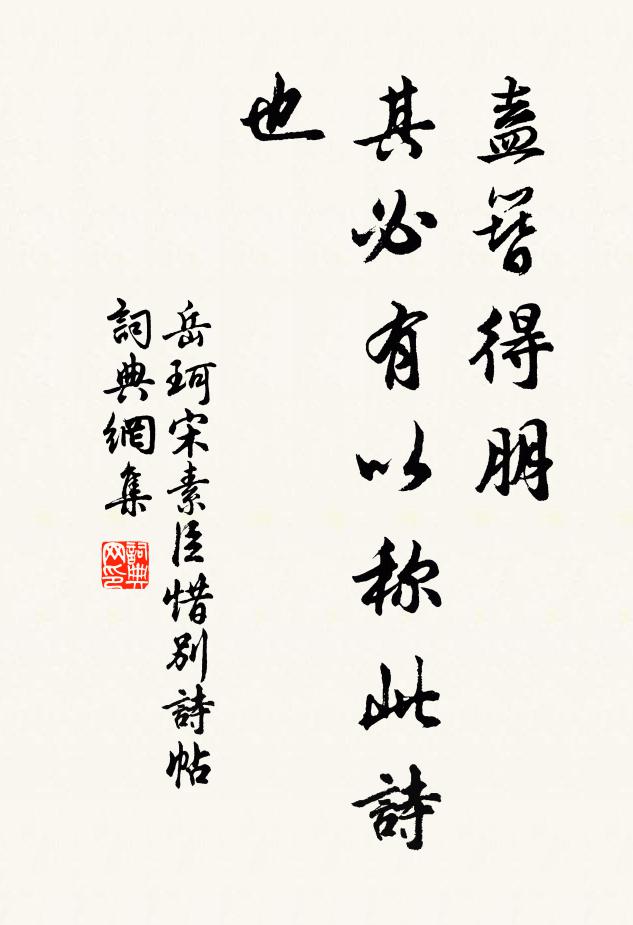 盍簪得朋
其必有以称此詩
也
岳珂宋素臣惜别詩帖
詞典網集
詞典网印